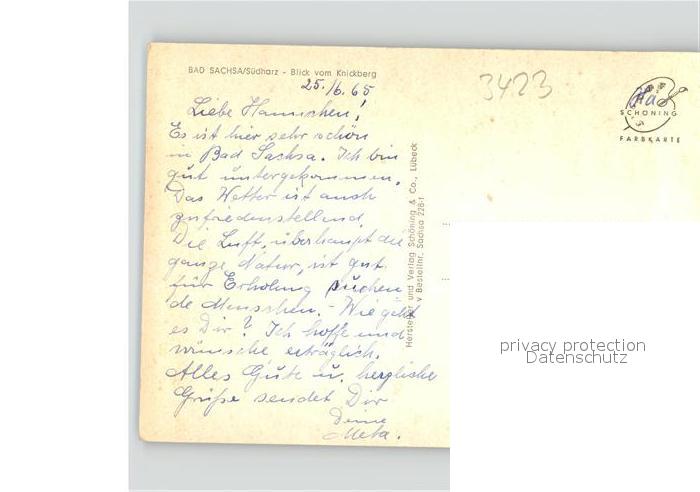 BAD SACHSA/Südharz - Blick vom Knickberg
25./6.65
Liebe Hannschen!
Es ist hier sehr schön
in Bad Sachsa. Ich bin
gut untergekommen.
Das Wetter ist auch
zufriedenstellend.
Die Luft, überhaupt die
ganze Natur, ist gut
für Erholung suchen-
de Menschen. - Wie geht
es Dir? Ich hoffe und
wünsche erträglich.
Alles Gute u. herzliche
Grüße sendet Dir
Deine
Meta.
Hersteller und Verlag Schöning & Co., Lübeck
v Bestellnr. Sachsa 228-f
3423
SCHÖNING
FARBKARTE
privacy protection
Datenschutz